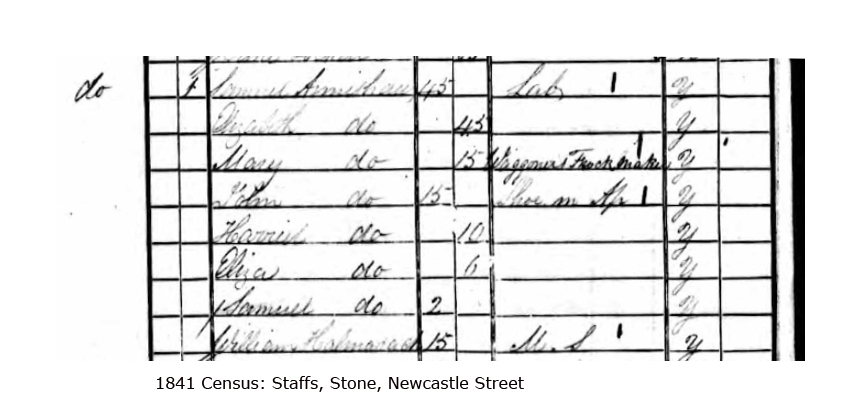 do 1 Samuel Armishaw 45 Lab Y
Elizabeth do 45 Y
Mary do 15 Waggoners Frock Maker Y
John do 15 Shoe m Ap Y
Harriet do 10 Y
Eliza do 6 Y
Samuel do 2 Y
William 15 M. S Y
1841 Census: Staffs, Stone, Newcastle Street